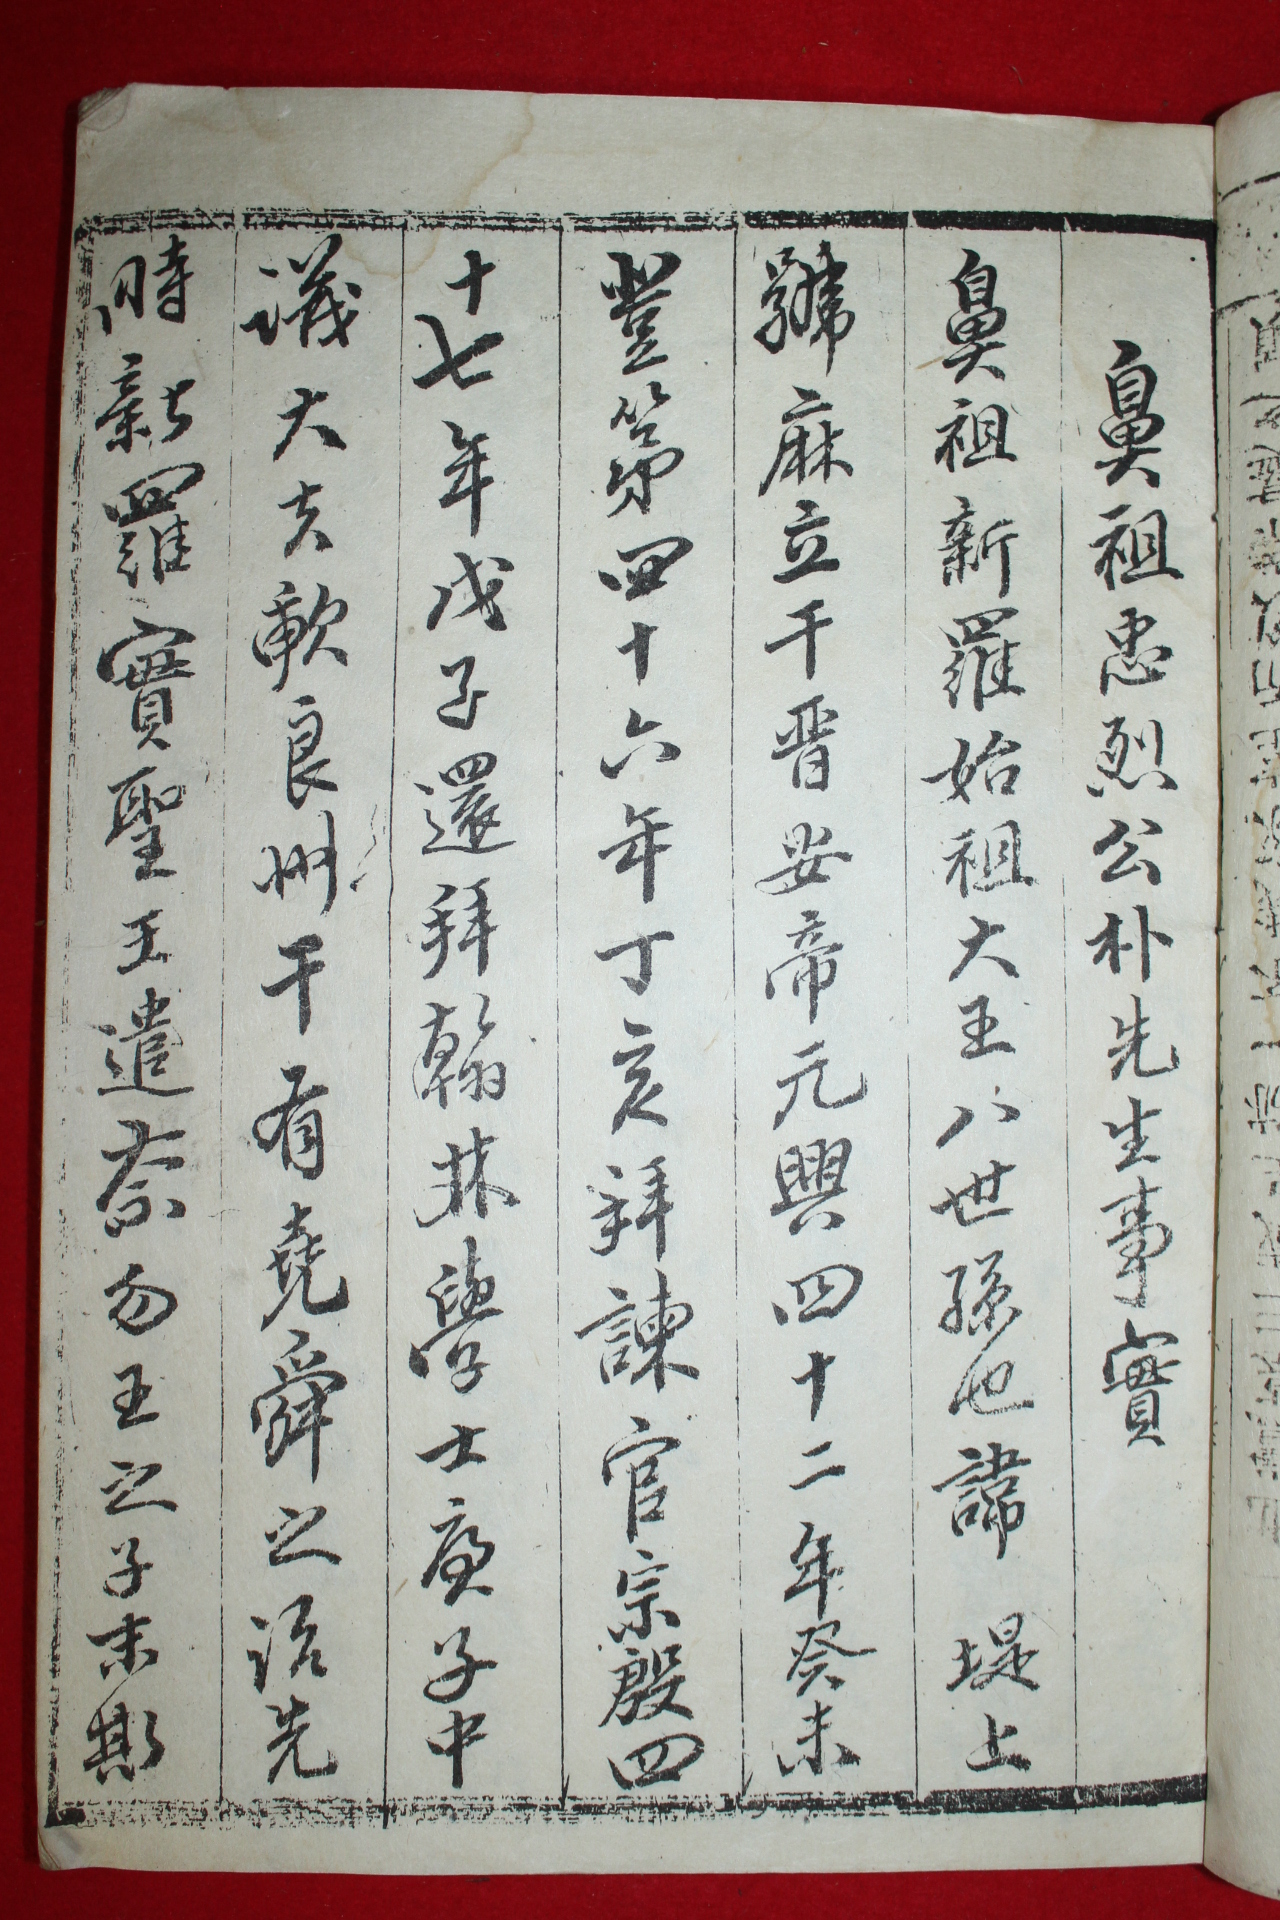 鼻祖忠烈公朴先生事實
鼻祖新羅始祖大王八世孫也諱 堤上
號麻立干晋安帝元興四十二年癸未
登第四十六年丁亥拜諫官宗殷四
十七年戊子還拜翰林學士庚子中
議大夫歃良州干有堯舜之治先
時新羅實聖王遣奈勿王之子末斯